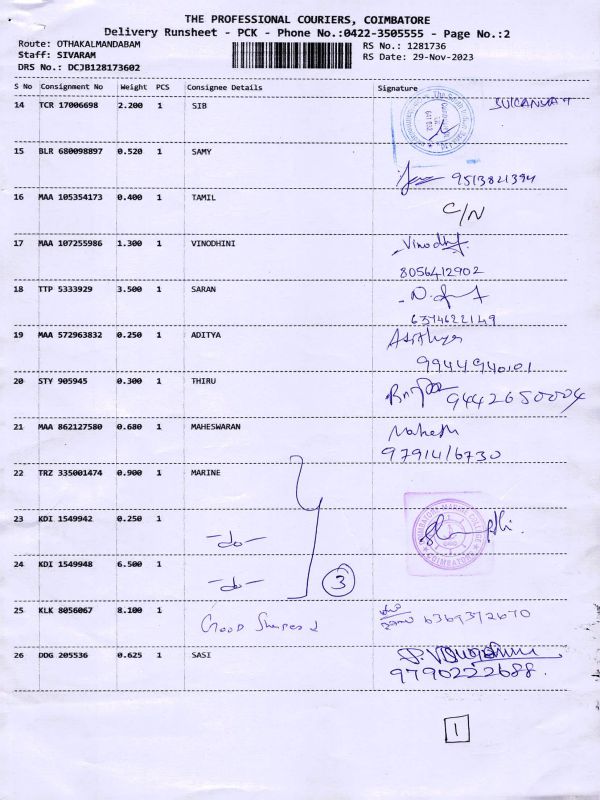 THE PROFESSIONAL COURIERS, COIMBATORE
Delivery Runsheet - PCK - Phone No.:0422-3505555 - Page No.:2
Route: OTHAKALMANDABAM RS No.: 1281736
Staff: SIVARAM RS Date: 29-Nov-2023
DRS No.: DCJB128173602
S No Consignment No Weight PCS Consignee Details Signature
14 TCR 17006698 2.200 1 SIB
15 BLR 680098897 0.520 1 SAMY
9513821394
16 MAA 105354173 0.400 1 TAMIL
C/N
17 MAA 107255986 1.300 1 VINODHINI
8056412902
18 TTP 5333929 3.500 1 SARAN
6374622149
19 MAA 572963832 0.250 1 ADITYA
9944940101
20 STY 905945 0.300 1 THIRU
9442650004
21 MAA 862127580 0.680 1 MAHESWARAN
Mahesh
9791416730
22 TRZ 335001474 0.900 1 MARINE
23 KDI 1549942 0.250 1
-do-
24 KDI 1549948 6.500 1
-do- 3
COIMBATORE MARINE COLLEGE
COIMBATORE
25 KLK 8056067 8.100 1 Good 6369372670
26 DDG 205536 0.625 1 SASI
9790222688.
1